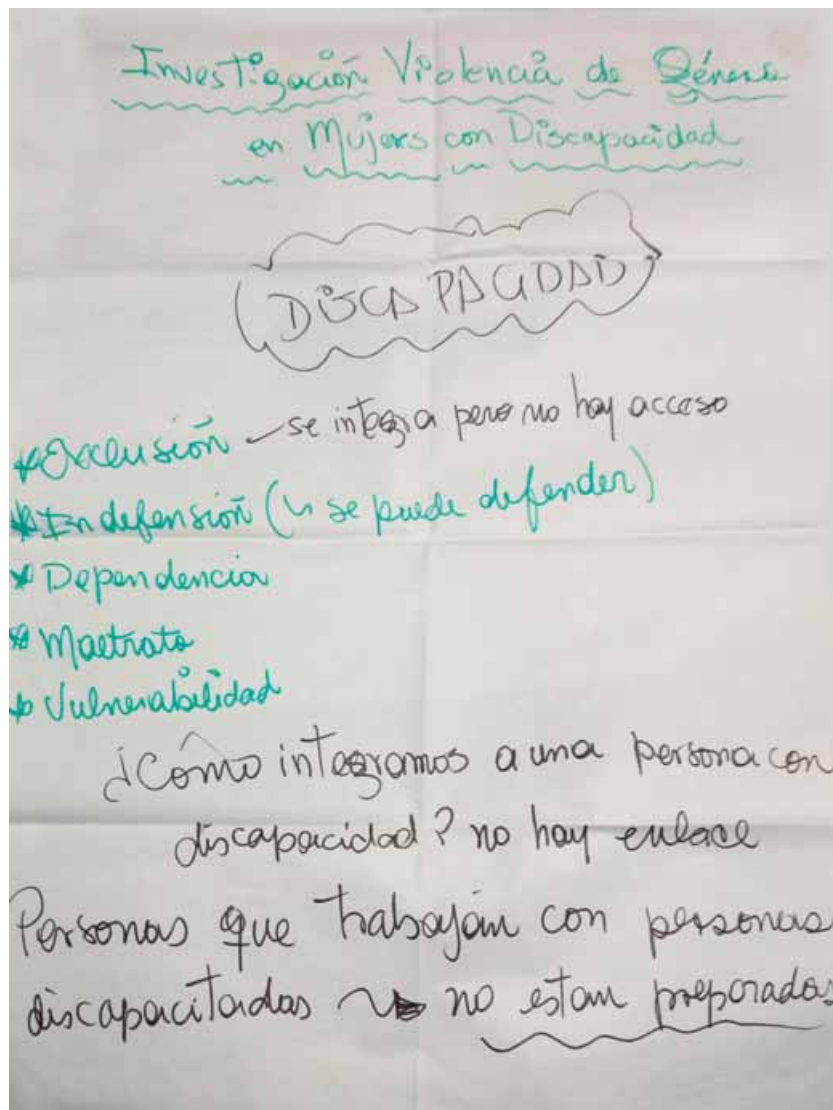 Investigación Violencia de Género
en Mujeres con Discapacidad
DISCAPACIDAD
*Exclusión - se integra pero no hay acceso
*Indefensión (↳ se puede defender)
*Dependencia
*Maltrato
*Vulnerabilidad
¿Cómo integramos a una persona con
discapacidad? no hay enlace
Personas que trabajan con personas
discapacitadas → no estan preparadas